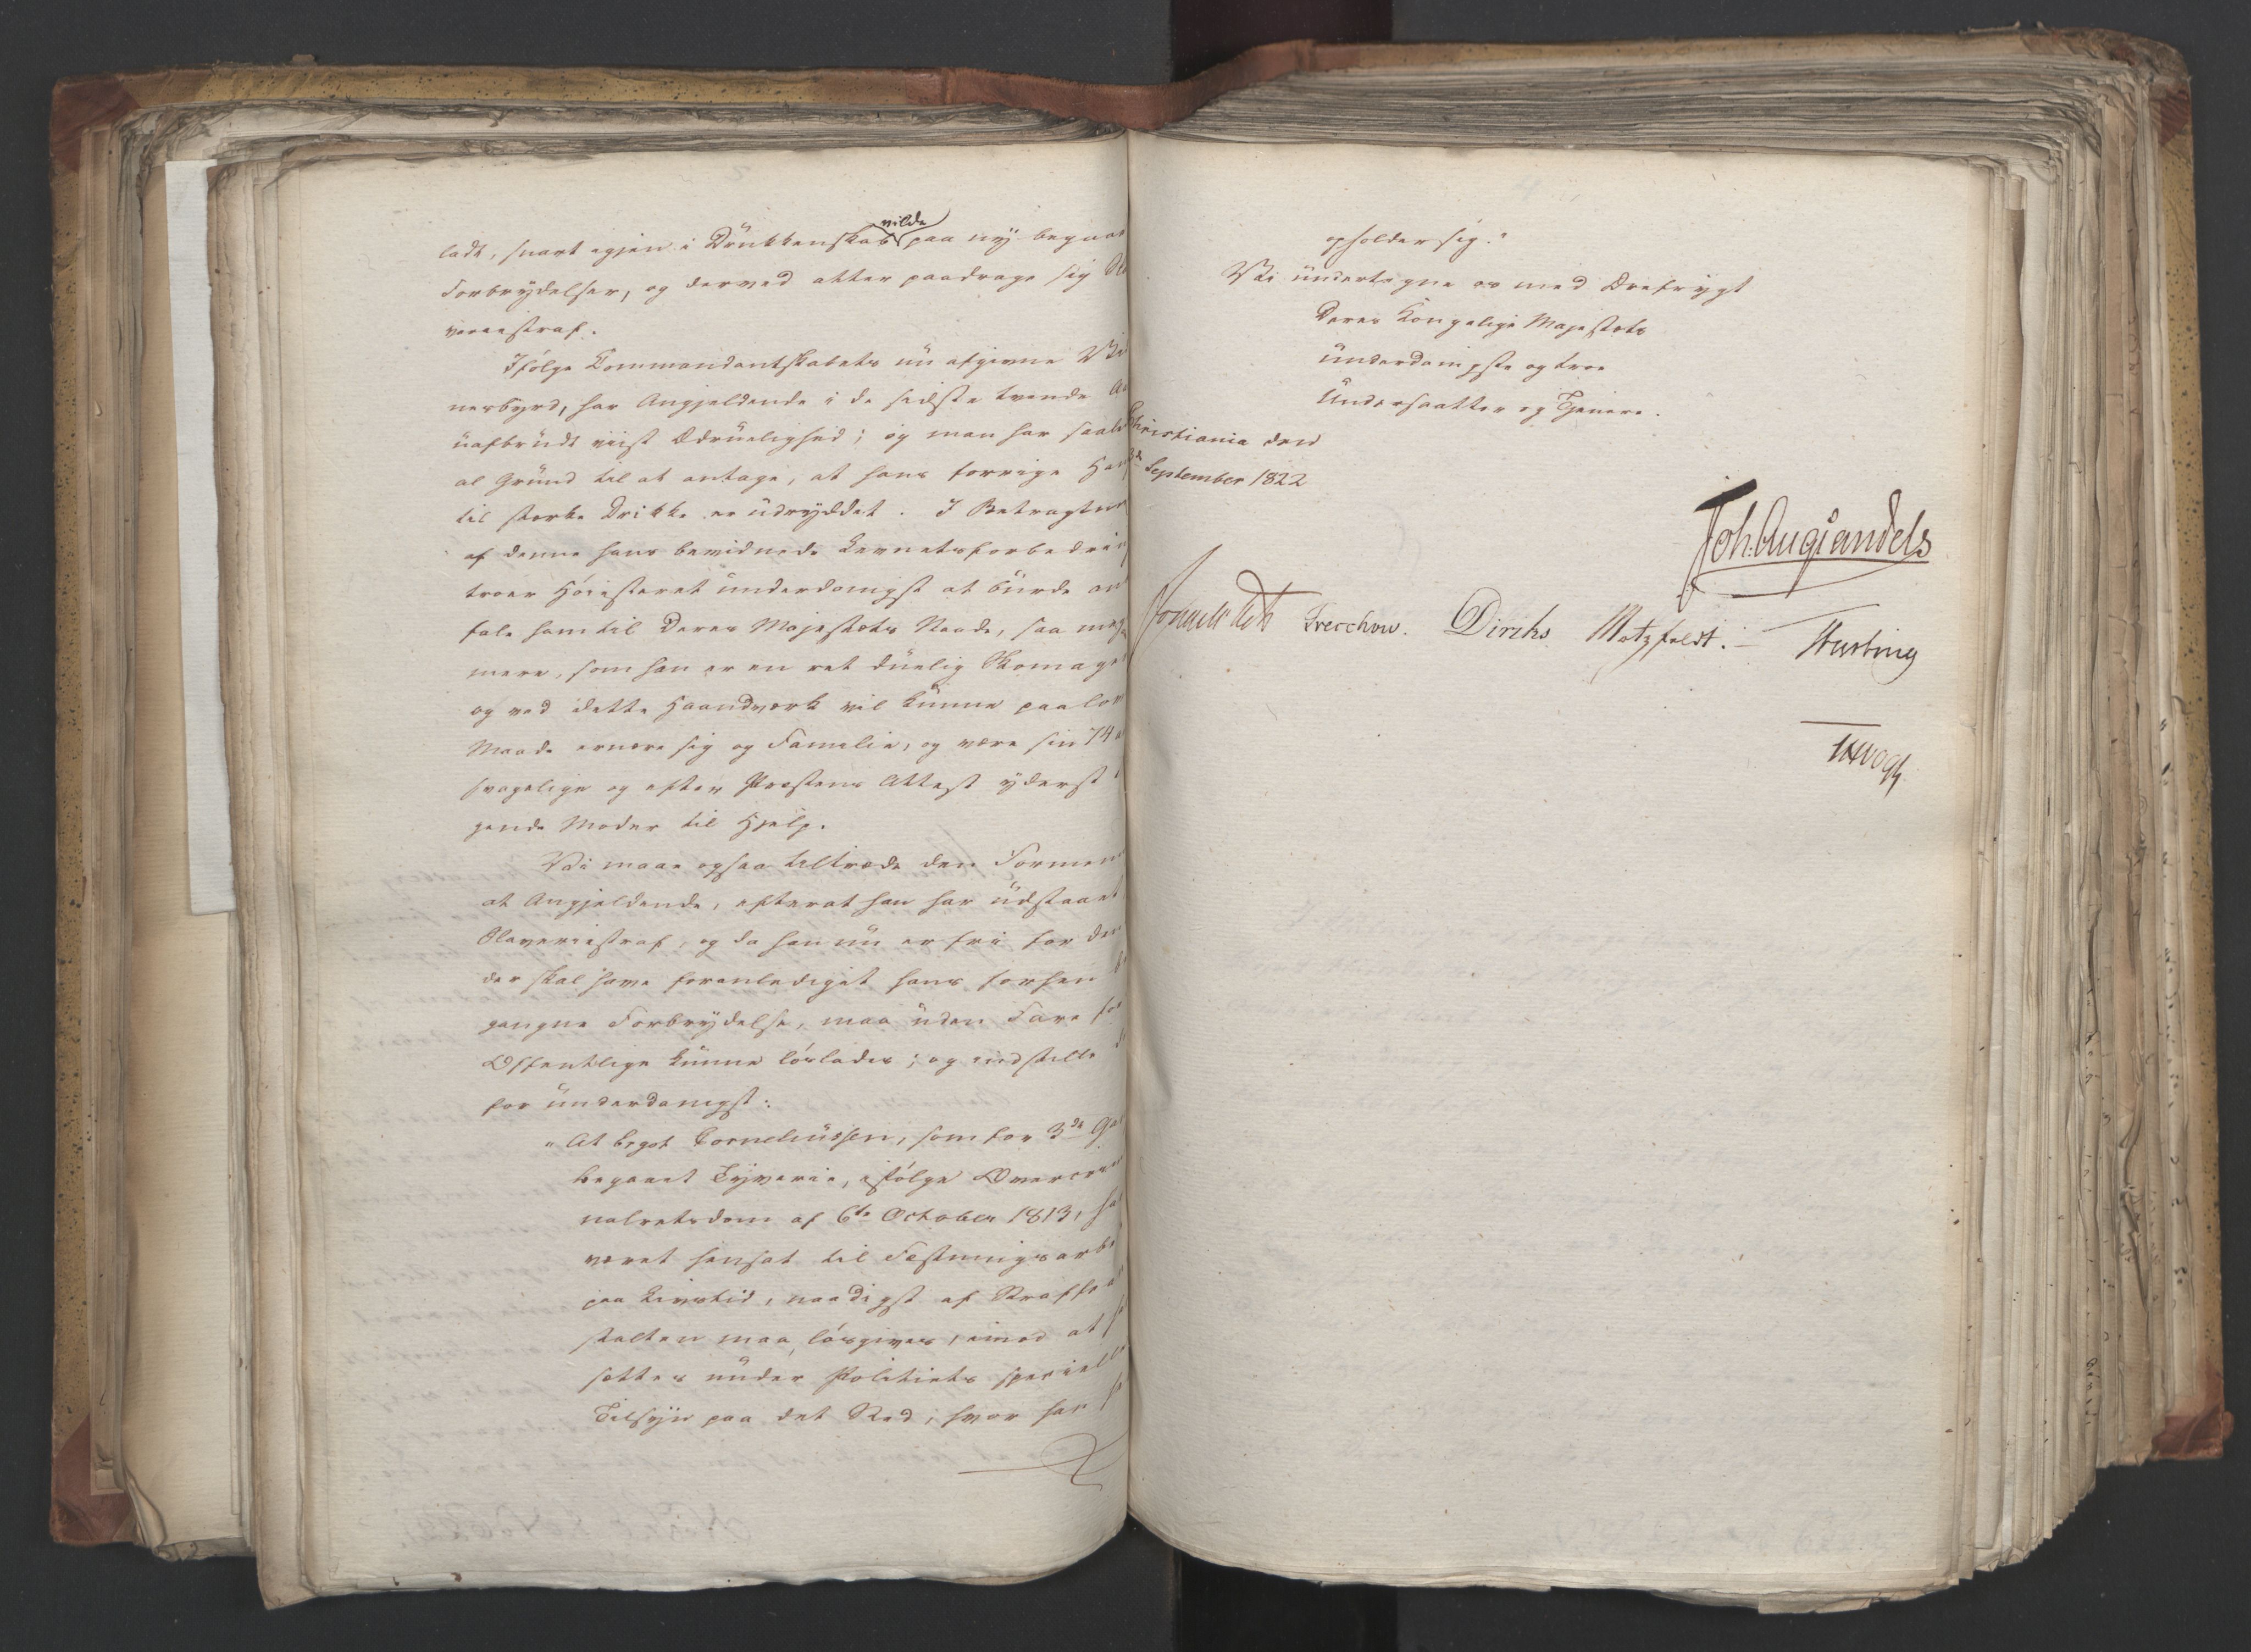 vilde
ladt, snart igjen i Drukkenskab paa ny begaae
Forbrydelser, og derved atter paadrage sig Sla
veriestraf.
Ifølge Commandantskabets nu afgivne Vid
nesbyrd, har Angjeldende i de sidste tvende Aa
uafbrudt viist Ædruelighed; og man har saaled
al Grund til at antage, at hans forrige Hang
til stærke Drikke er udryddet. I Betragtning
af denne hans bevidnede Levnetsforbedring
troer Høiesteret underdanigst at burde an
fale ham til Deres Majestæts Naade, saa meget
mere, som han er en ret duelig Skomager
og ved dette Haandværk vil kunne paa lov
Maade ernære sig og Familie, og være sin 74 a
svagelige og efter Præstens Attest yderst
gende Moder til Hjelp.
Vi maae ogsaa tiltræde den Formen
at Angjeldende, efterat han har udstaaet
Slaveriestraf, og da han nu er frie for den
der skal have foranlediget hans forhen
gangne Forbrydelse, maa uden Fare for
Offentlige kunne løslades; og indstille
for underdanigst:
"At Birgot Corneliussen, som for 3de Gang
begaaet Tyverie, ifølge Overcrimi
nalretsdom af 6te October 1813, har
været hensat til Fæstningsarbe
paa Livstid, naadigst af Straffean
stalten maa løsgives, imod at
sættes under Politiets specielle
Tilsyn paa det Sted, hvor han
opholder sig."
Vi undertegne os med Ærefrygt
Deres Kongelige Majestæts
underdanigste og troe
Undersaatter og Tjenere.
Christiania den
September 1822
Joh. Aug. Sandels
Sommerhielm Treschow. Diriks Motzfeldt. Hersting